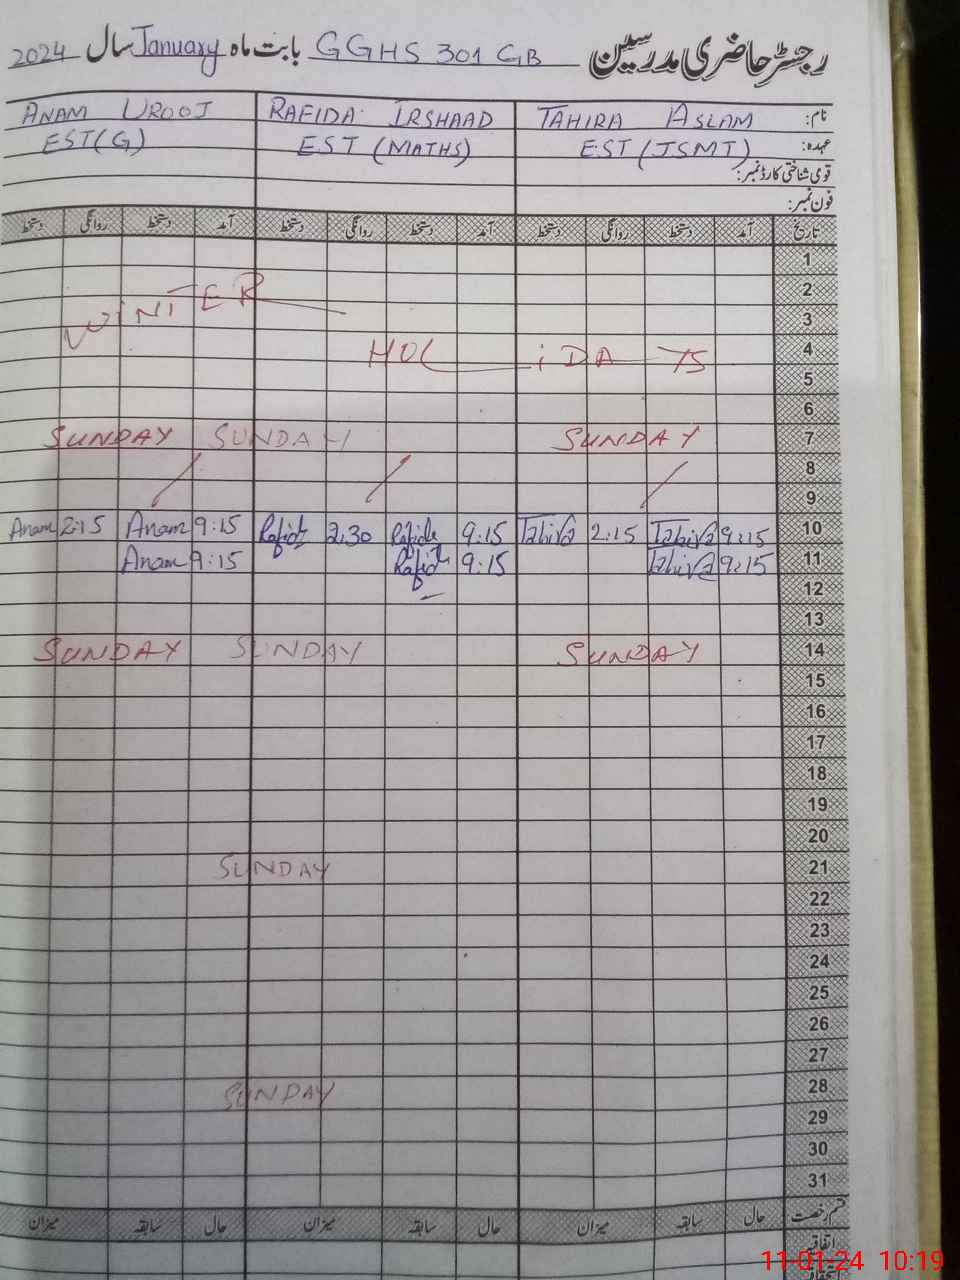 رجسٹر حاضری مدرسین GGHS 301 GB بابت ماہ January سال 2024
نام: TAHIRA ASLAM RAFIDA IRSHAAD ANAM UROOJ
عہدہ: EST (JSMT) EST (MATHS) EST(G)
قومی شناختی کارڈ نمبر:
فون نمبر:
تاریخ آمد دستخط روانگی دستخط آمد دستخط روانگی دستخط آمد دستخط روانگی دستخط
1
2 WINTER
3
4 HOLiDAYS
5
6
7 SUNDAY SUNDAY SUNDAY
8
9
10 9:15 Tahira 2:15 Tahira 9:15 Rafida 2:30 Rafida 9:15 Anam 2:15 Anam
11 9:15 Tahira 9:15 Rafida 9:15 Anam
12
13
14 SUNDAY SUNDAY SUNDAY
15
16
17
18
19
20
21 SUNDAY
22
23
24
25
26
27
28 SUNDAY
29
30
31
قسم رخصت حال سابقہ میزان حال سابقہ میزان حال سابقہ میزان
اتفاقیہ
11-01-24 10:19